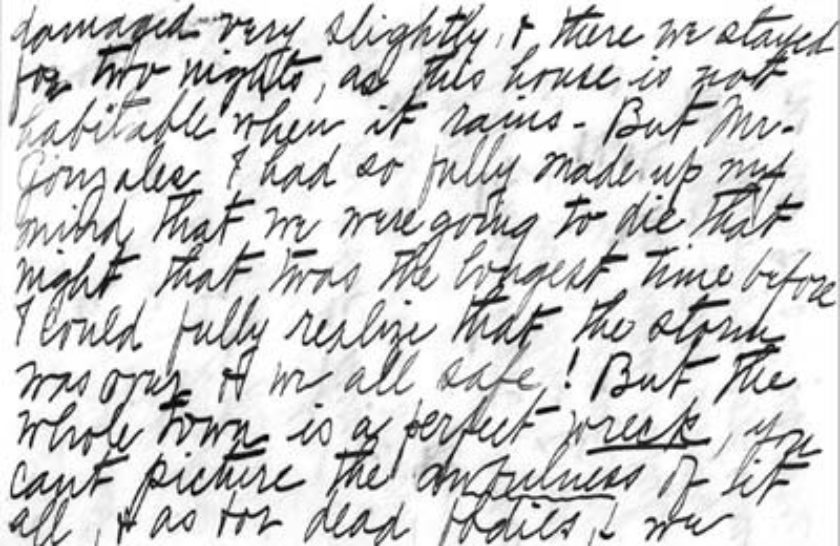 damaged very slightly, & there we stayed
for two nights, as this house is not
habitable when it rains - But Mr.
Gonzales I had so fully made up my
mind that we were going to die that
night that twas the longest time before
I could fully realize that the storm
was over & we all safe! But the
whole town is a perfect wreck, you
cant picture the awfulness of it
all, & as for dead bodies, we